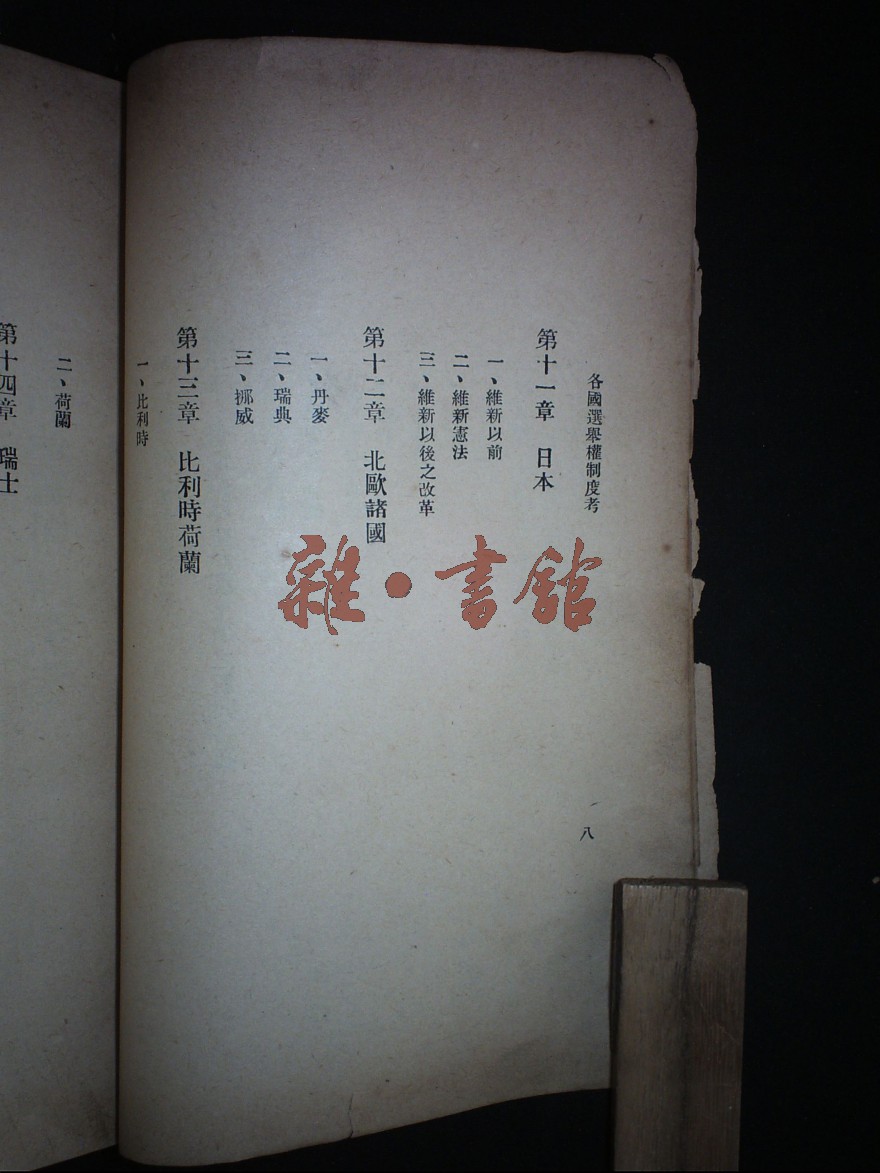 各國選舉權制度考
第十一章　日本
一、維新以前
二、維新憲法
三、維新以後之改革
第十二章　北歐諸國
一、丹麥
二、瑞典
三、挪威
第十三章　比利時荷蘭
一、比利時
八
二、荷蘭
第十四章　瑞士
雜•書館